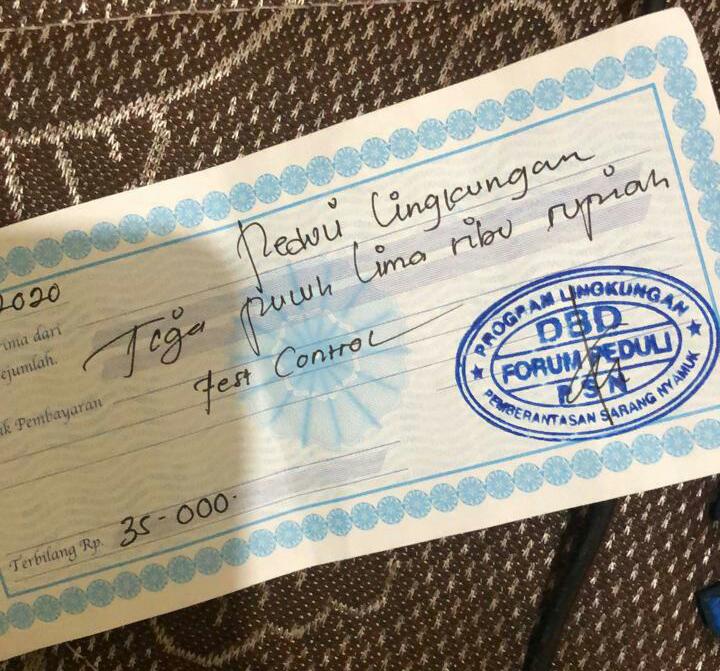 2020
Peduli Lingkungan
ima dari
Tiga puluh lima ribu rupiah
ejumlah.
fest Control
uk Pembayaran
PROGRAM LINGKUNGAN
DBD
FORUM PEDULI
PSN
PEMBERANTASAN SARANG NYAMUK
Terbilang Rp. 35-000-